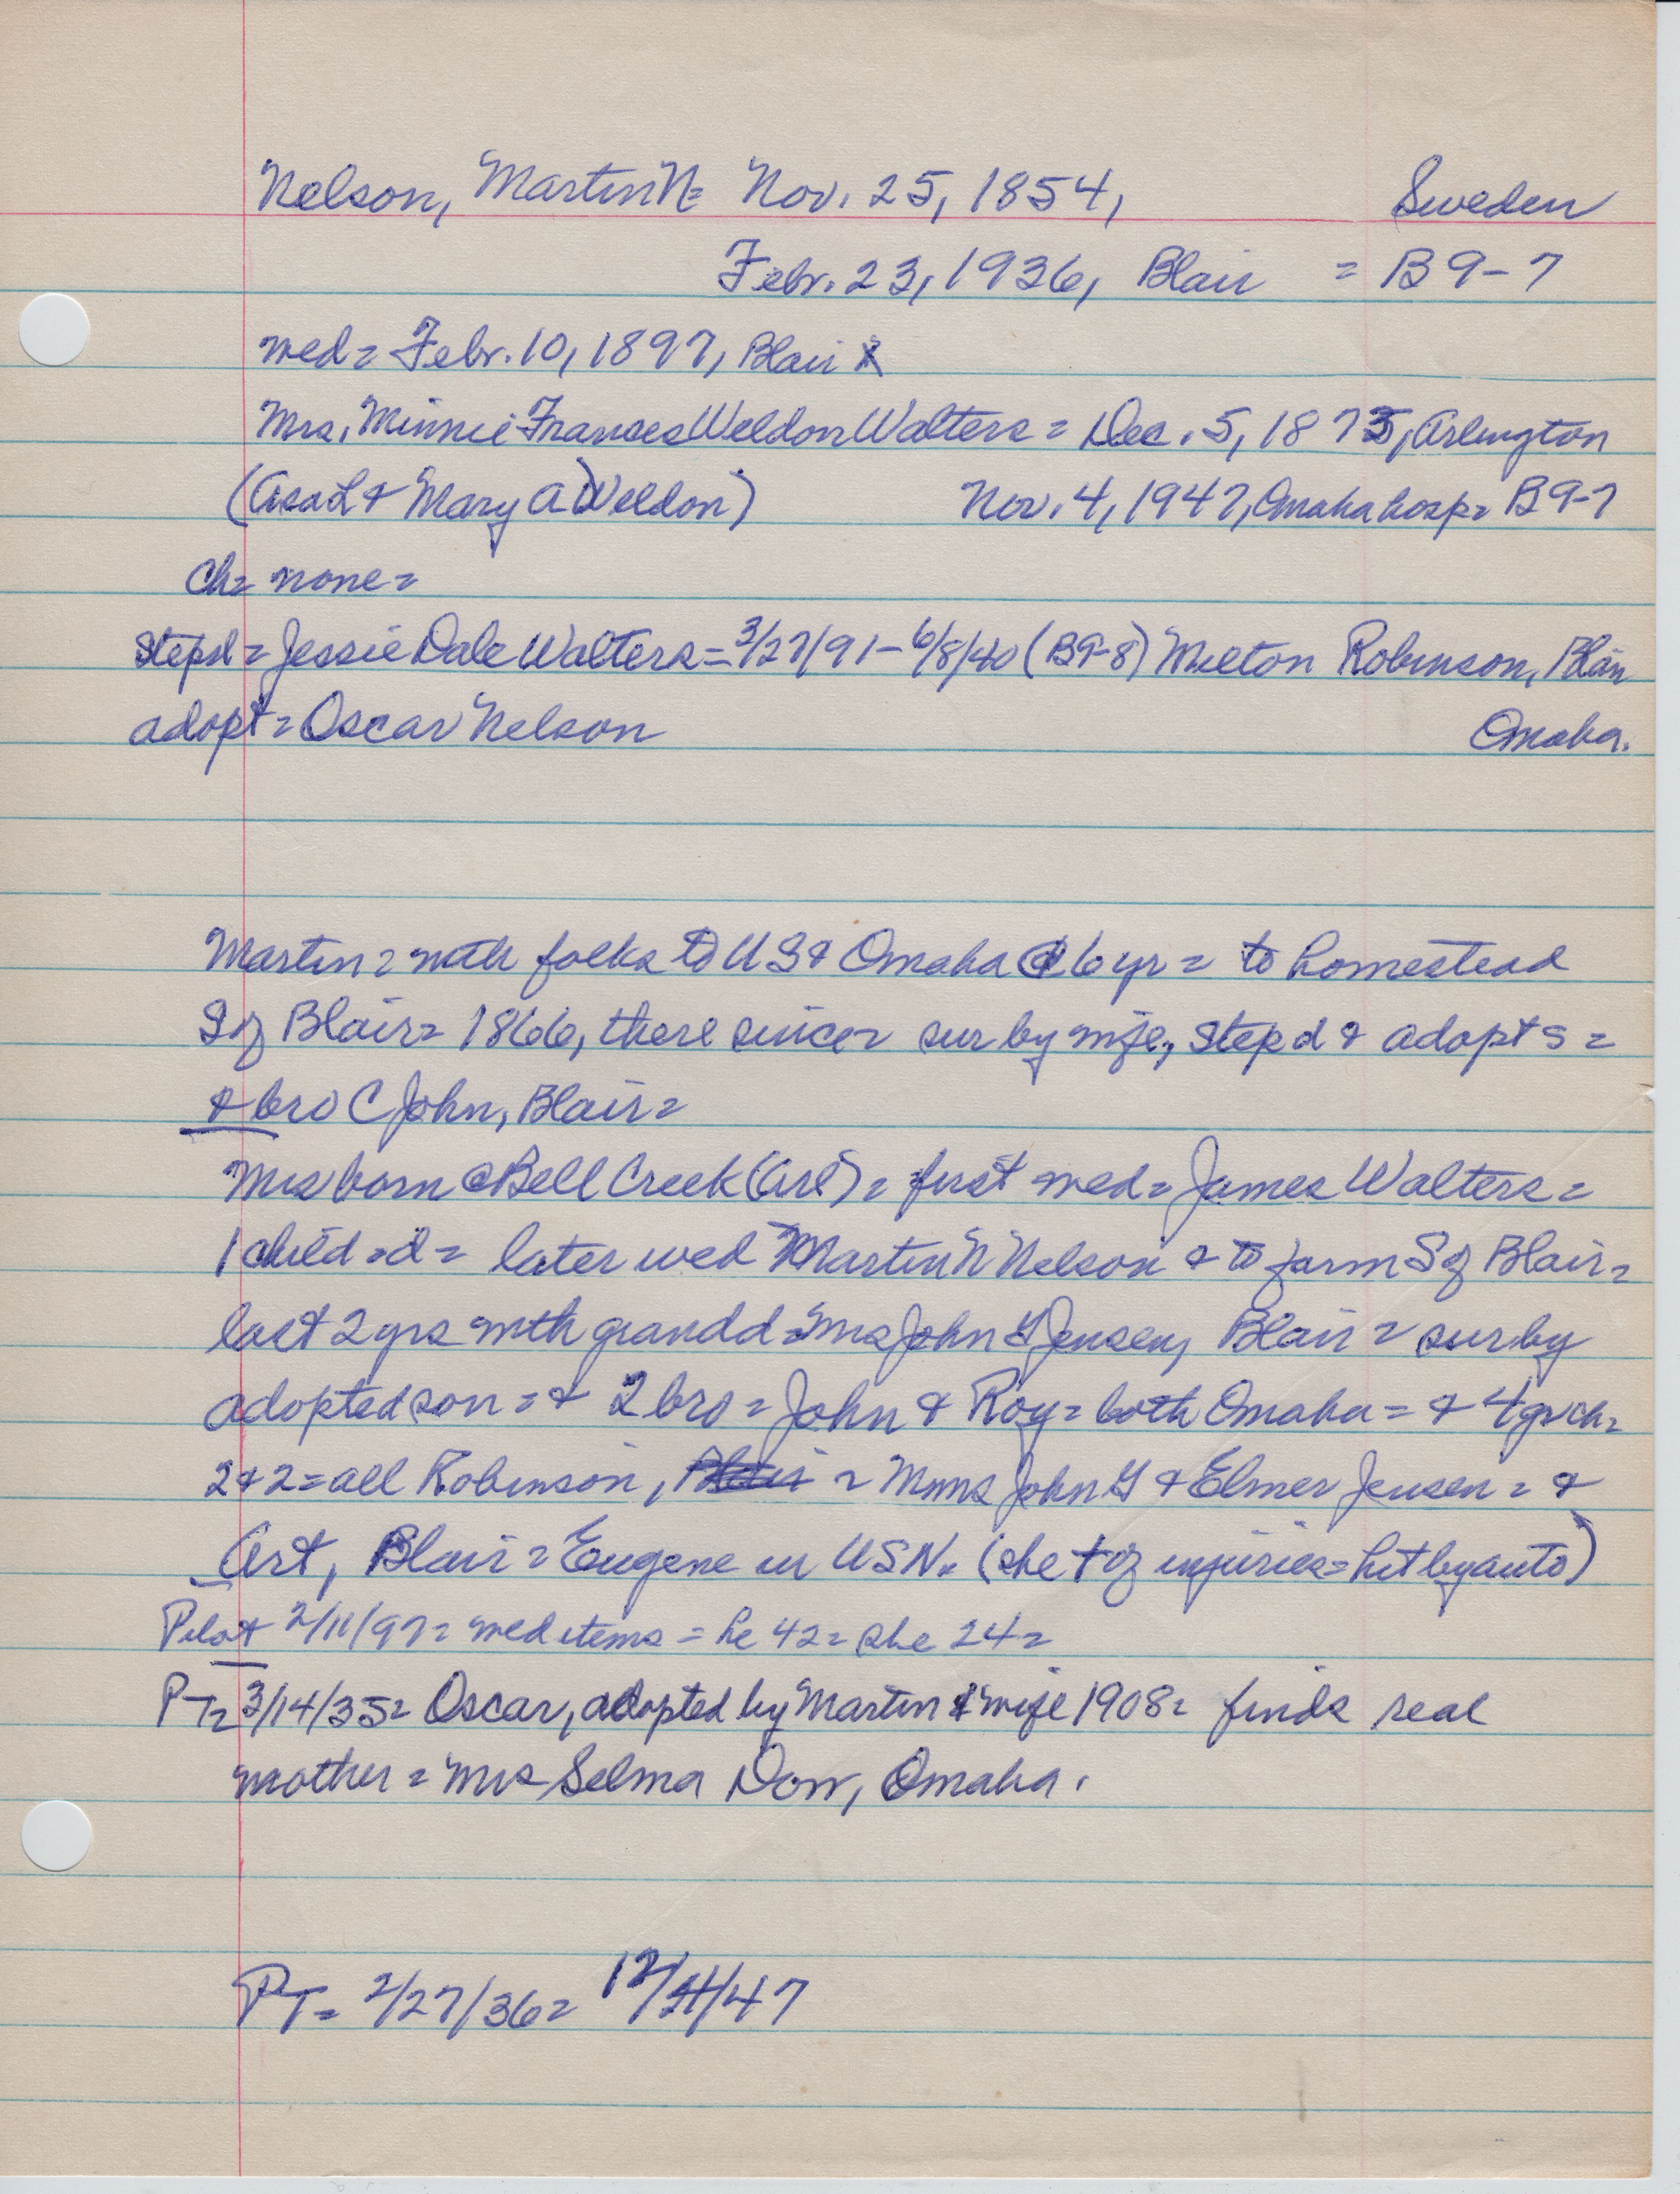 Nelson, Martin N= Nov. 25, 1854, Sweden
Febr. 23, 1936, Blair = B9-7
wed= Febr. 10, 1897, Blair
Mrs. Minnie Frances Weldon Walters = Dec. 5, 1873, Arlington
(Asa L & Mary A Weldon) Nov. 4, 1947, Omaha hosp= B9-7
Ch= none=
Stepd = Jessie Dale Walters = 3/27/91 - 6/8/40 (B9-8) Milton Robinson, Blair
adopt = Oscar Nelson Omaha.
Martin = with folks to US & Omaha @ 6 yr = to homestead
S of Blair = 1866, there since = sur by wife, step d & adopt s =
& bro C John, Blair =
Mrs born @ Bell Creek (Arl) = first wed = James Walters =
1 child = d = later wed Martin N Nelson & to farm S of Blair =
last 2 yrs with grandd = Mrs John G Jensen, Blair = sur by
adopted son = & 2 bro = John & Roy = both Omaha = & 4 gr ch =
2 & 2 = all Robinson, = Mmes John G & Elmer Jensen = &
Art, Blair = Eugene in USN. (she † of injuries = hit by auto)
Pilot 2/11/97 = wed items = he 42 = she 24 =
PT= 3/14/35= Oscar, adopted by Martin & wife 1908 = finds real
mother = Mrs Selma Dow, Omaha.
PT= 2/27/36= 12/4/47